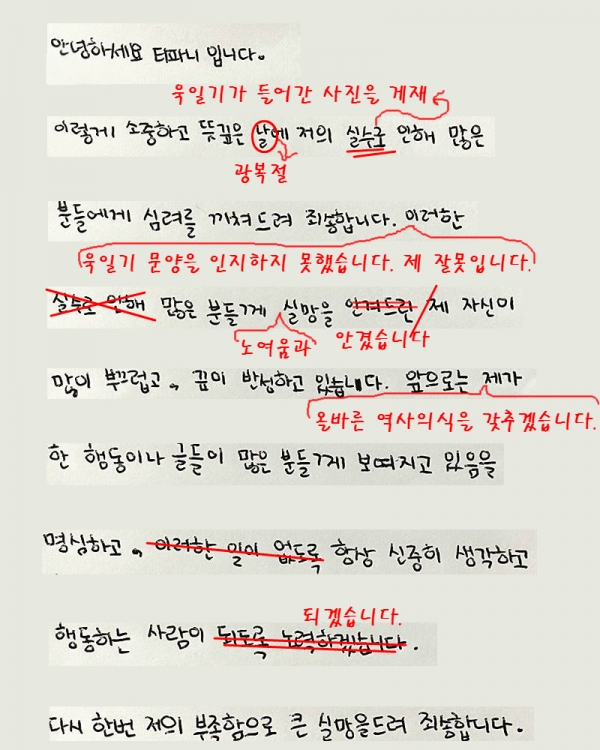 안녕하세요 티파니 입니다.
욱일기가 들어간 사진을 게재
이렇게 소중하고 뜻깊은 날에 저의 실수로 인해 많은
광복절
분들에게 심려를 끼쳐드려 죄송합니다. 이러한
욱일기 문양을 인지하지 못했습니다. 제 잘못입니다.
실수로 인해 많은 분들께 실망을 안겨드린 제 자신이
노여움과 안겼습니다
많이 부끄럽고, 깊이 반성하고 있습니다. 앞으로는 제가
올바른 역사의식을 갖추겠습니다.
한 행동이나 글들이 많은 분들께 보여지고 있음을
명심하고, 이러한 일이 없도록 항상 신중히 생각하고
되겠습니다.
행동하는 사람이 되도록 노력하겠습니다.
다시 한번 저의 부족함으로 큰 실망을드려 죄송합니다.